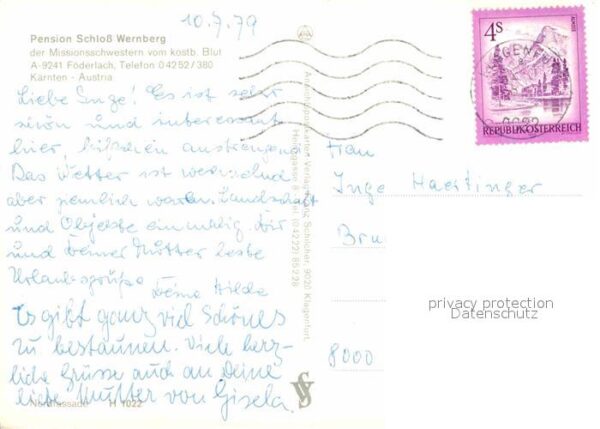 10.7.79
Pension Schloß Wernberg
der Missionsschwestern vom kostb. Blut
A-9241 Föderlach, Telefon 0 42 52 / 380
Kärnten - Austria
Liebe Inge! Es ist sehr
schön und interessant
hier, bißchen anstrengend
Das Wetter ist wechselnd
aber ziemlich warm. Landschaft
und Objekte einmalig. Dir
und Deiner Mutter beste
Urlaubsgrüße Deine Hilde
Es gibt ganz viel Schönes
zu bestaunen. Viele herz-
liche Grüsse auch an Deine
liebe Mutter von Gisela.
Nordfassade H 1022
4S
REPUBLIK ÖSTERREICH
Frau
Inge Haertinger
Bru
8000
privacy protection
Datenschutz